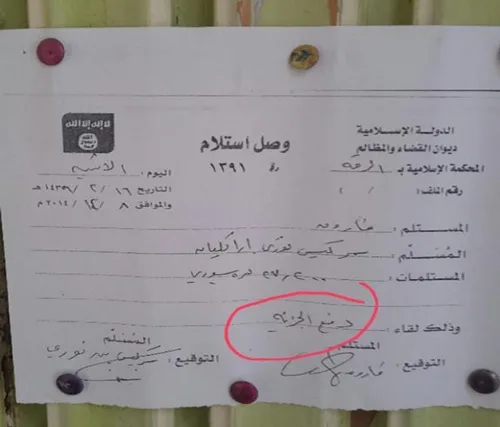 الدولة الإسلامية
ديوان القضاء والمظالم
المحكمة الإسلامية بـ الرقة
رقم الملف: / ٢
وصل استلام
١٣٩١
لا إله إلا الله
الله رسول محمد
اليوم: الاثنين
التاريخ ١٦ / ٢ / ١٤٣٦ هـ
والموافق ٨ / ١٢ / ٢٠١٤ م
المستلم: فاروق
المُسَلِّم: سركيس نوري اراكليان
المستلمات: ٢٧,٢٠٠ ليرة سوري
وذلك لقاء: دفع الجزية
المستلم
التوقيع: فاروق
المُسَلِّم
التوقيع: سركيس نوري